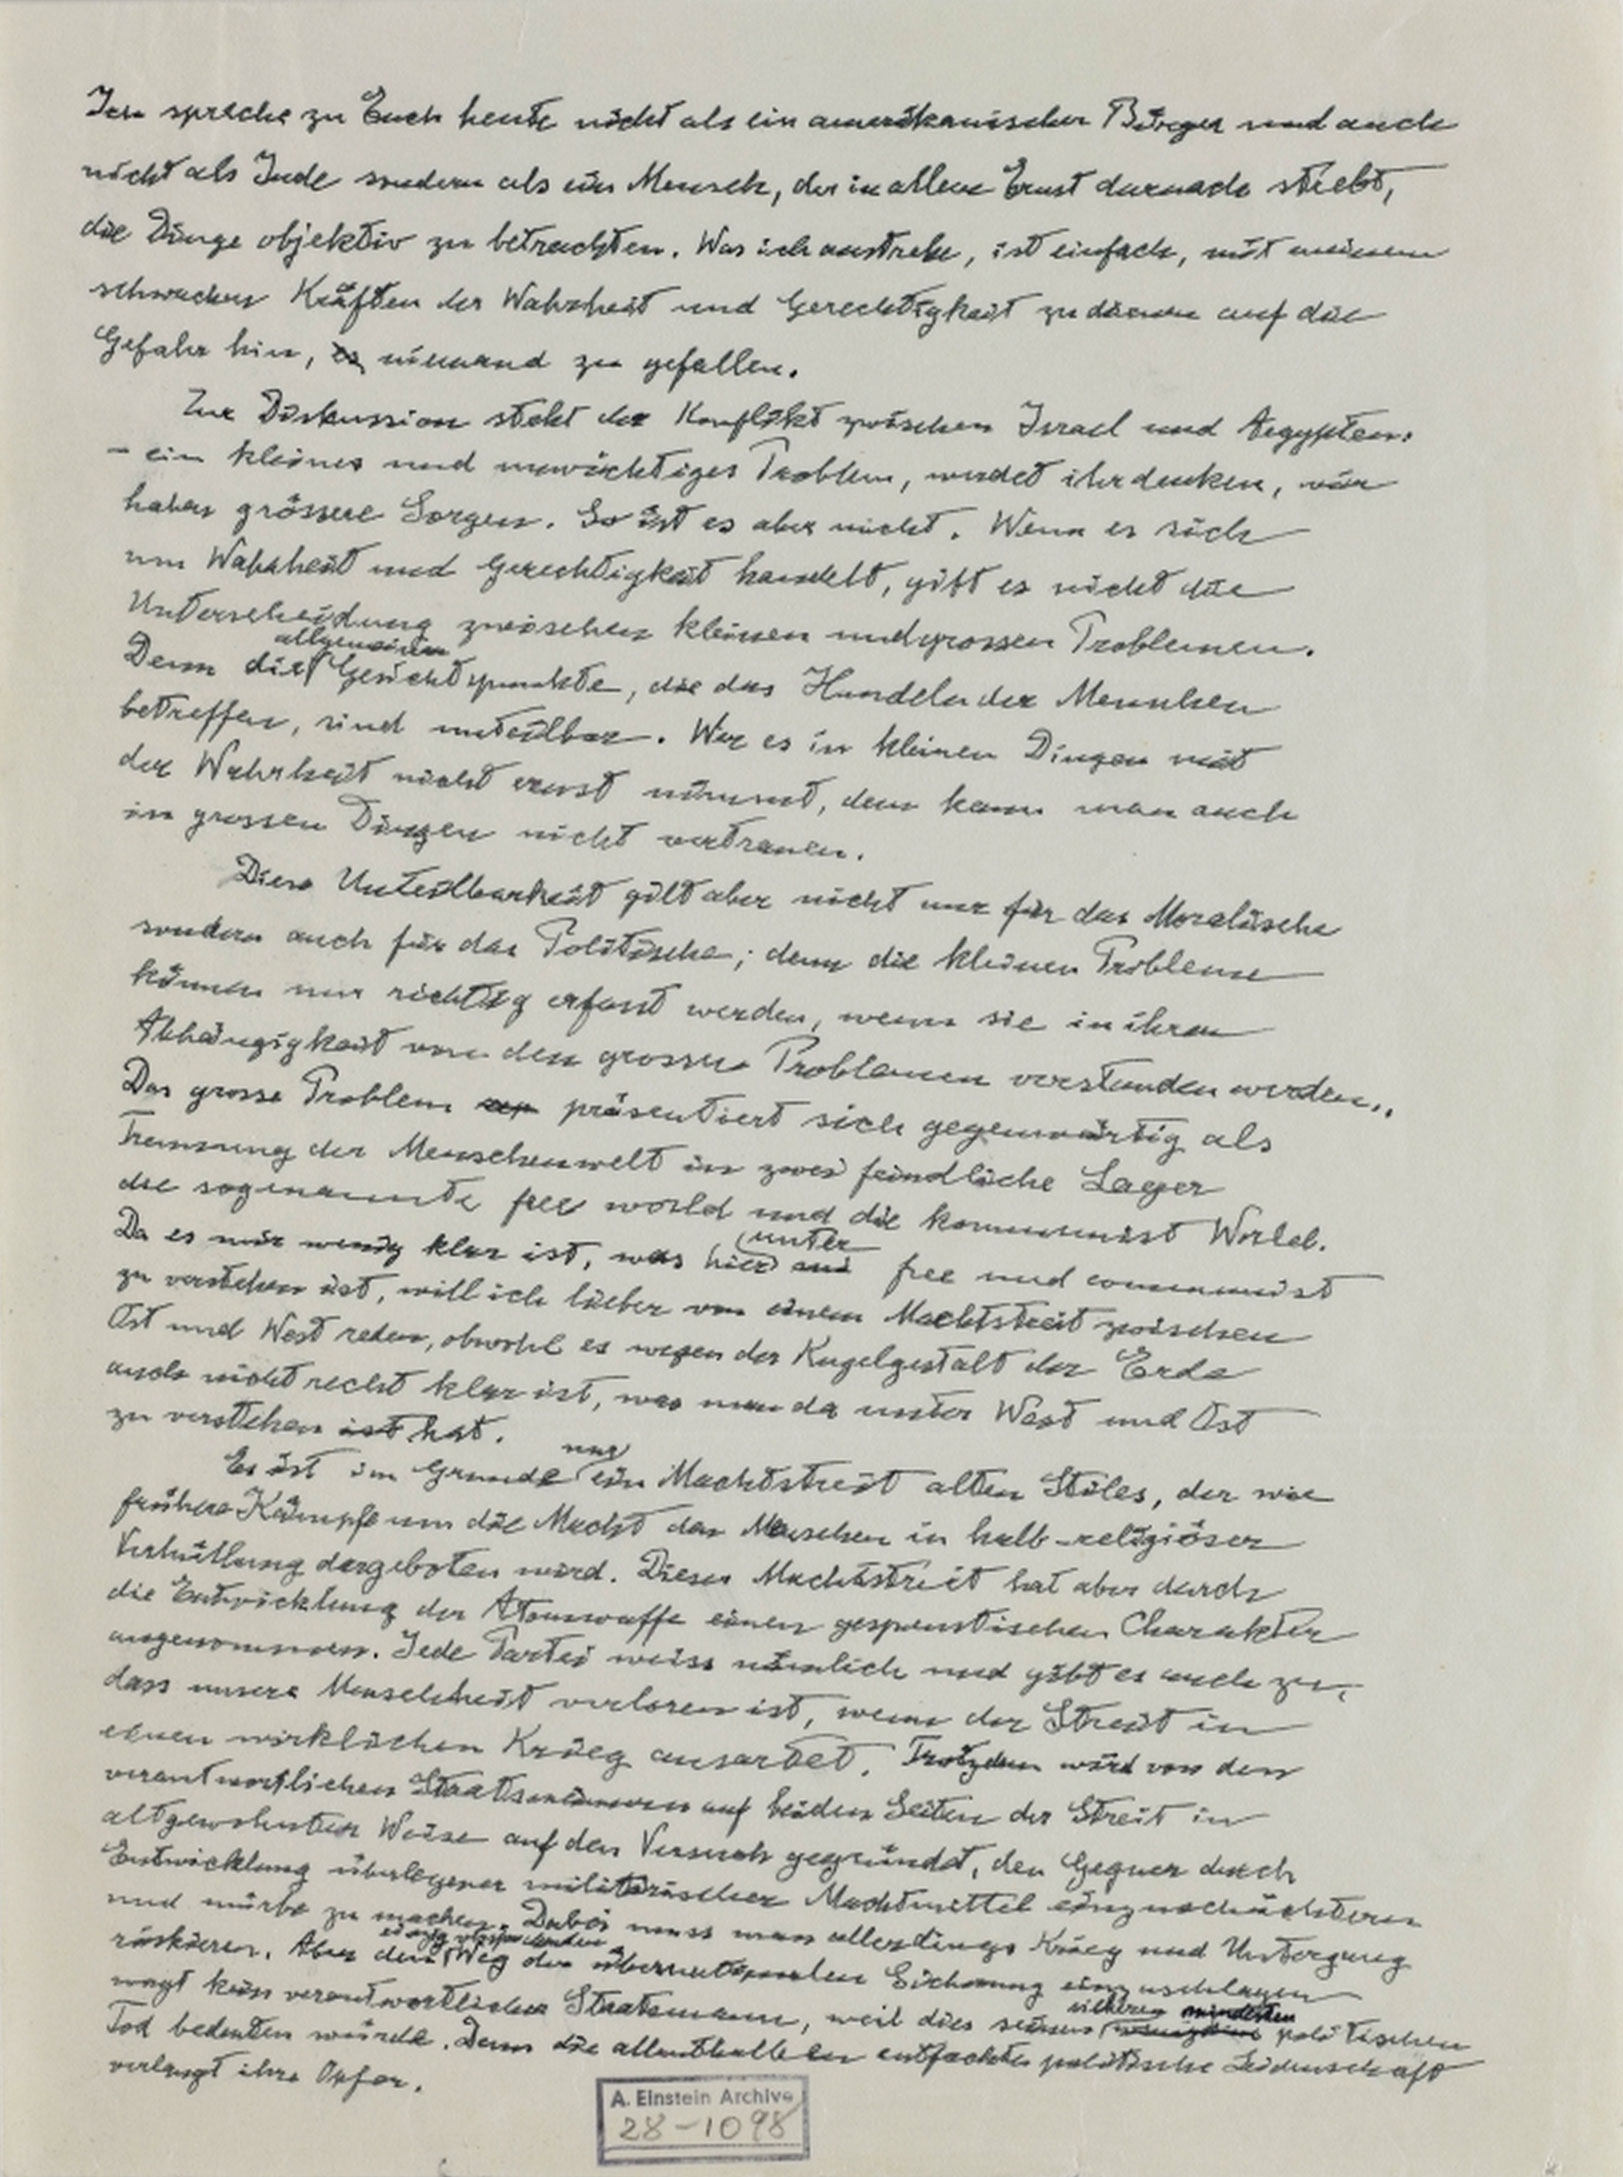 Ich spreche zu Euch heute nicht als ein amerikanischer Bürger und auch
nicht als Jude sondern als ein Mensch, der in allem Ernst darnach strebt,
die Dinge objektiv zu betrachten. Was ich anstrebe, ist einfach, mit meinen
schwachen Kräften der Wahrheit und Gerechtigkeit zu dienen auf die
Gefahr hin, es niemand zu gefallen.
Zur Diskussion steht der Konflikt zwischen Israel und Aegypten.
- ein kleines und unwichtiges Problem, werdet ihr denken, wir
haben grössere Sorgen. So ist es aber nicht. Wenn es sich
um Wahrheit und Gerechtigkeit handelt, gibt es nicht die
Unterscheidung zwischen kleinen und grossen Problemen.
allgemeinen
Denn die Gesichtspunkte, die das Handeln der Menschen
betreffen, sind unteilbar. Wer es in kleinen Dingen mit
der Wahrheit nicht ernst nimmt, dem kann man auch
in grossen Dingen nicht vertrauen.
Diese Unteilbarkeit gilt aber nicht nur für das Moralische
sondern auch für das Politische; denn die kleinen Probleme
können nur richtig erfasst werden, wenn sie in ihrer
Abhängigkeit von den grossen Problemen verstanden werden..
Das grosse Problem präsentiert sich gegenwärtig als
Trennung der Menschenwelt in zwei feindliche Lager
die sogenannte free world und die kommunist World.
unter
Da es mir wenig klar ist, was hier free und communist
zu verstehen ist, will ich lieber von einem Machtstreit zwischen
Ost und West reden, obwohl es wegen der Kugelgestalt der Erde
auch nicht recht klar ist, was man da unter West und Ost
zu verstehen ist hat.
nur
Es ist im Grunde ein Machtstreit alten Stiles, der wie
frühere Kämpfe um die Macht den Menschen in halb-religiöser
Verhüllung dargeboten wird. Dieser Machtstreit hat aber durch
die Entwicklung der Atomwaffe einen gespenstischen Charakter
angenommen. Jede Partei weiss nämlich und gibt es auch zu,
dass unsere Menschheit verloren ist, wenn der Streit in
einen wirklichen Krieg ausartet. Trotzdem wird von den
verantwortlichen Staatsmännern auf beiden Seiten der Streit in
altgewohnter Weise auf den Versuch gegründet, den Gegner durch
Entwicklung überlegener militärischer Machtmittel einzuschüchtern
und mürbe zu machen. Dabei muss man allerdings Krieg und Untergang
riskieren. Aber den Weg der übernationalen Sicherung einzuschlagen
wagt kein verantwortlicher Staatsmann, weil dies seinen sicheren politischen
Tod bedeuten würde. Denn die allenthalben entfachte politische Leidenschaft
verlangt ihre Opfer.
A. Einstein Archive
28-1098